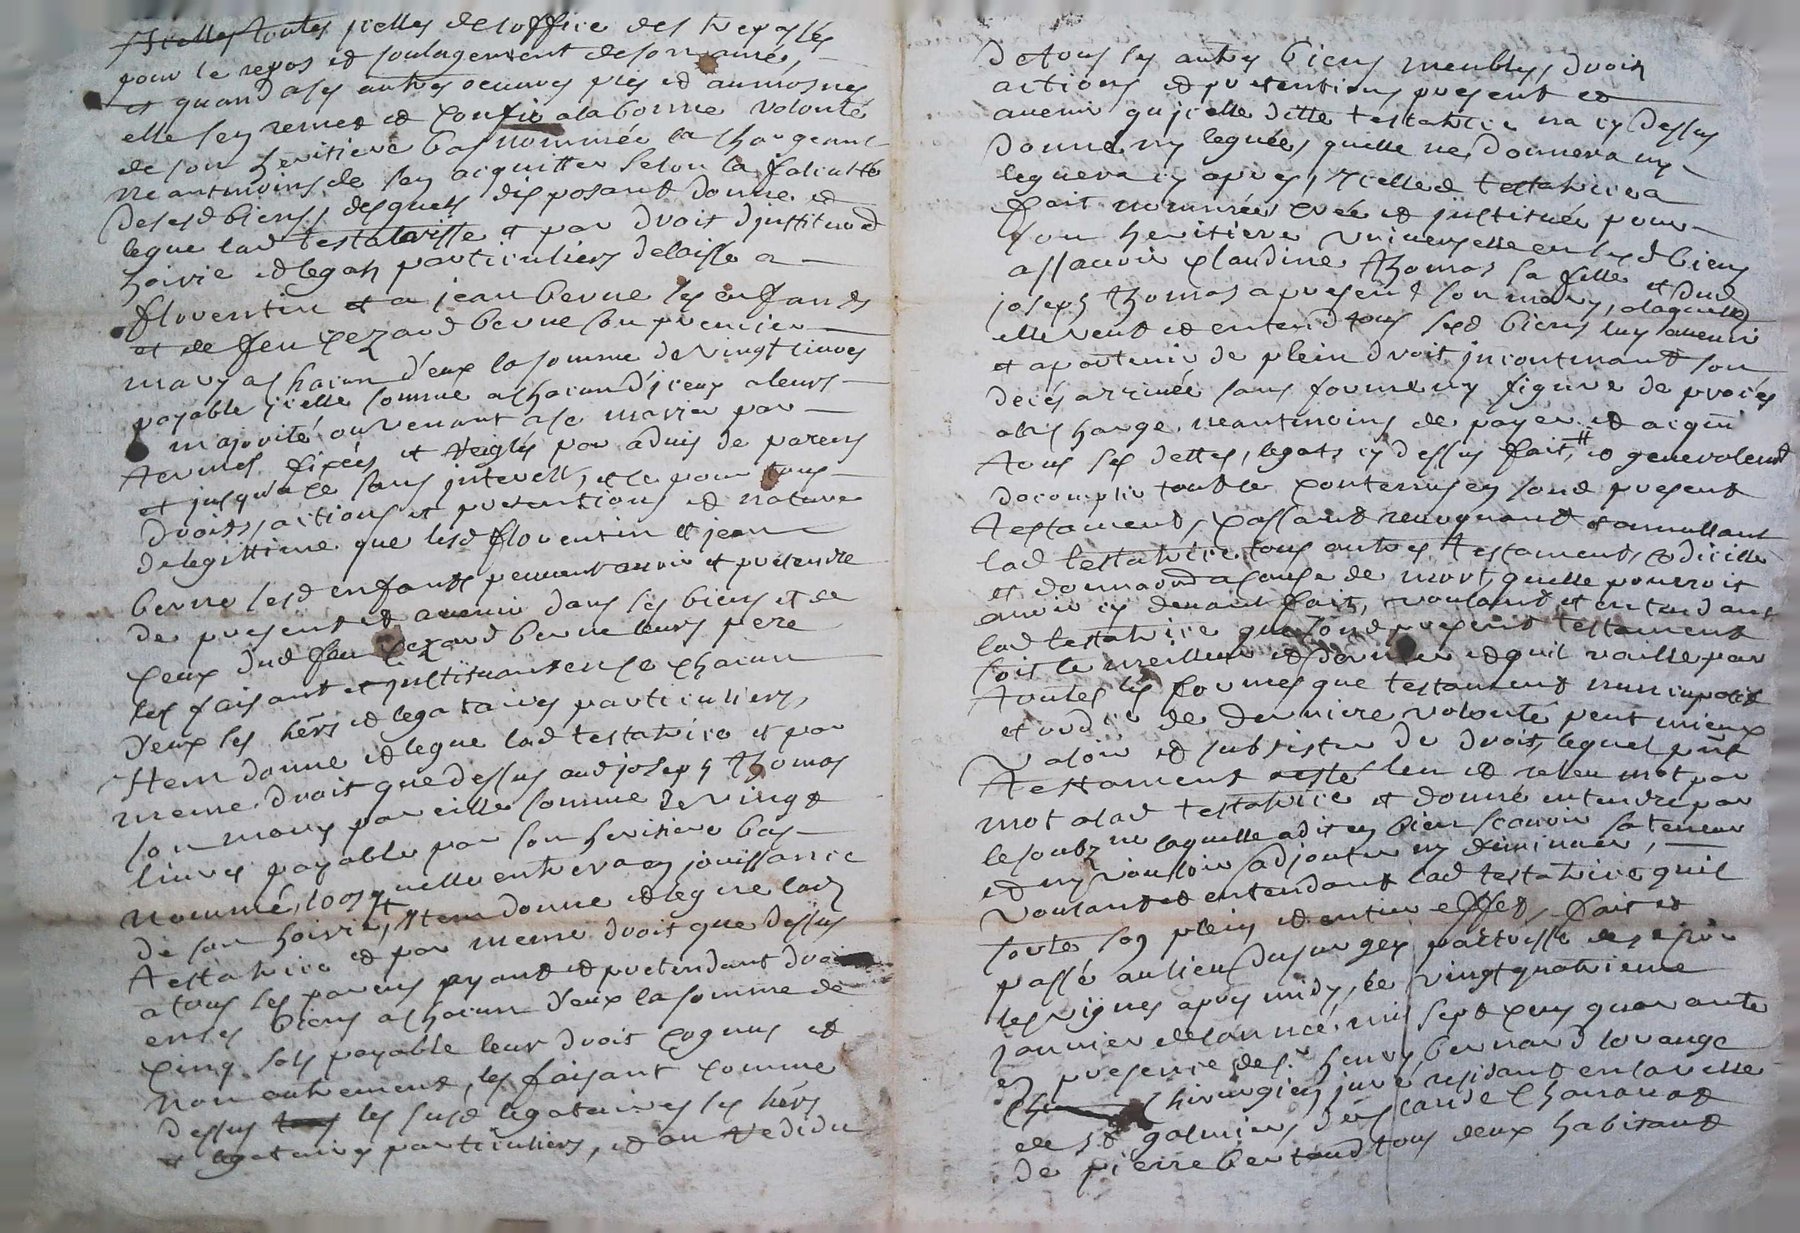 toutes jcelles de loffice des trepassés
pour le repos et soulagement de son ame,
et quand a ses autres oeuvres pies et aumosnes
elle sen remet et confie a la bonne volonté
de son heritiere bas nommée la chargeant
neantmoins de sen acquitter selon la faculté
de sesd biens, desquels disposant donne et
legue lad testatrisse et par droit djnstitu͠on
hoirie et legats particuliers delaisse a
florentin et a jean berne ses enfands
et de feu pezard berne son premier
mary a chacun d'eux la somme de vingt livres
payable jcelle somme a chacun d'jceux a leurs
majorité ou venant a se marier par
termes fixés et reiglés par aduis de parens
et jusqu'a ce sans jnterest, et ce pour tous
droits, actions et pretentions et nature
de legittime que lesd florentin et jean
berne lesd enfants peuuent auoir et pretendre
de present et auenir dans ses biens et de
ceux dud feu pezard berne leurs pere
les faisant et jnstituant en ce chacun
d'eux ses hers et legataires particuliers,
Item donne et legue lad testatrice et par
meme droit que dessus aud joseph thomas
son mary pareille somme de vingt
liures payable par son heritiere bas
nommé, lorsquelle entrera en jouissance
de son hoirie, Item donne et legue lad
testatrice et par meme droit que dessus
a tous ses parens ayant et pretendant droit
en ses biens a chacun d'eux la somme de
cinq sols payable leur droit cognus et
non autrement, les faisant comme
dessus les susd legataires ses hers
et legataires particuliers, et au redidu
de tous ses autres biens meubles, droits
actions et pretentions present et
auenir qu'jcelle ditte testatrice na cy dessus
donné ny legués, quelle ne donnera ny
leguera cy apres, jcelle d testatrice a
fait nommée créé et jnstituée pour
son heritiere vniuerselle en sesd biens
assauoir claudine thomas sa fille et dud
joseph thomas a present son mary, a laquelle
elle veut et entend tous sesd biens luy auenir
et apartenir de plein droit jncontinant son
decés arriuée sans forme ny figure de procés
a la charge neantmoins de payer et acquitter
tous ses dettes, legats cy dessus fait, et generalement
dacomplir tout le contenus en sond present
testament, cassant reuoquant et annullant
lad testatrice tous autres testament, codicille
et donna͠on a cause de mort, quelle pourroit
auoir cy deuant fait, voulant et entendant
lad testatrice que sond present testament
soit le meilleur et dernier et quil vaille par
toutes les formes que testament nuncupatif
et ord͠ce de derniere volonté peut mieux
valoir et subsister de droit, lequel pnt
testament a esté leu et releu mot par
mot a lad testatrice et donné entendre par
le soubz ne laquelle a dit en bien scauoir sa teneur
et ny vouloir adjouter ny diminuer,
voulant et entendant lad testatrice quil
sorte son plein et entier effet, fait et
passé au lieu paroisse de
les vignes apres midy, le vingt quatrieme
januier de lannée mil sept cens quarante
en presence de sr henry bernard lorange
chirurgien juré residant en la ville
de st galmier,
de pierre bertrand tous deux habitant